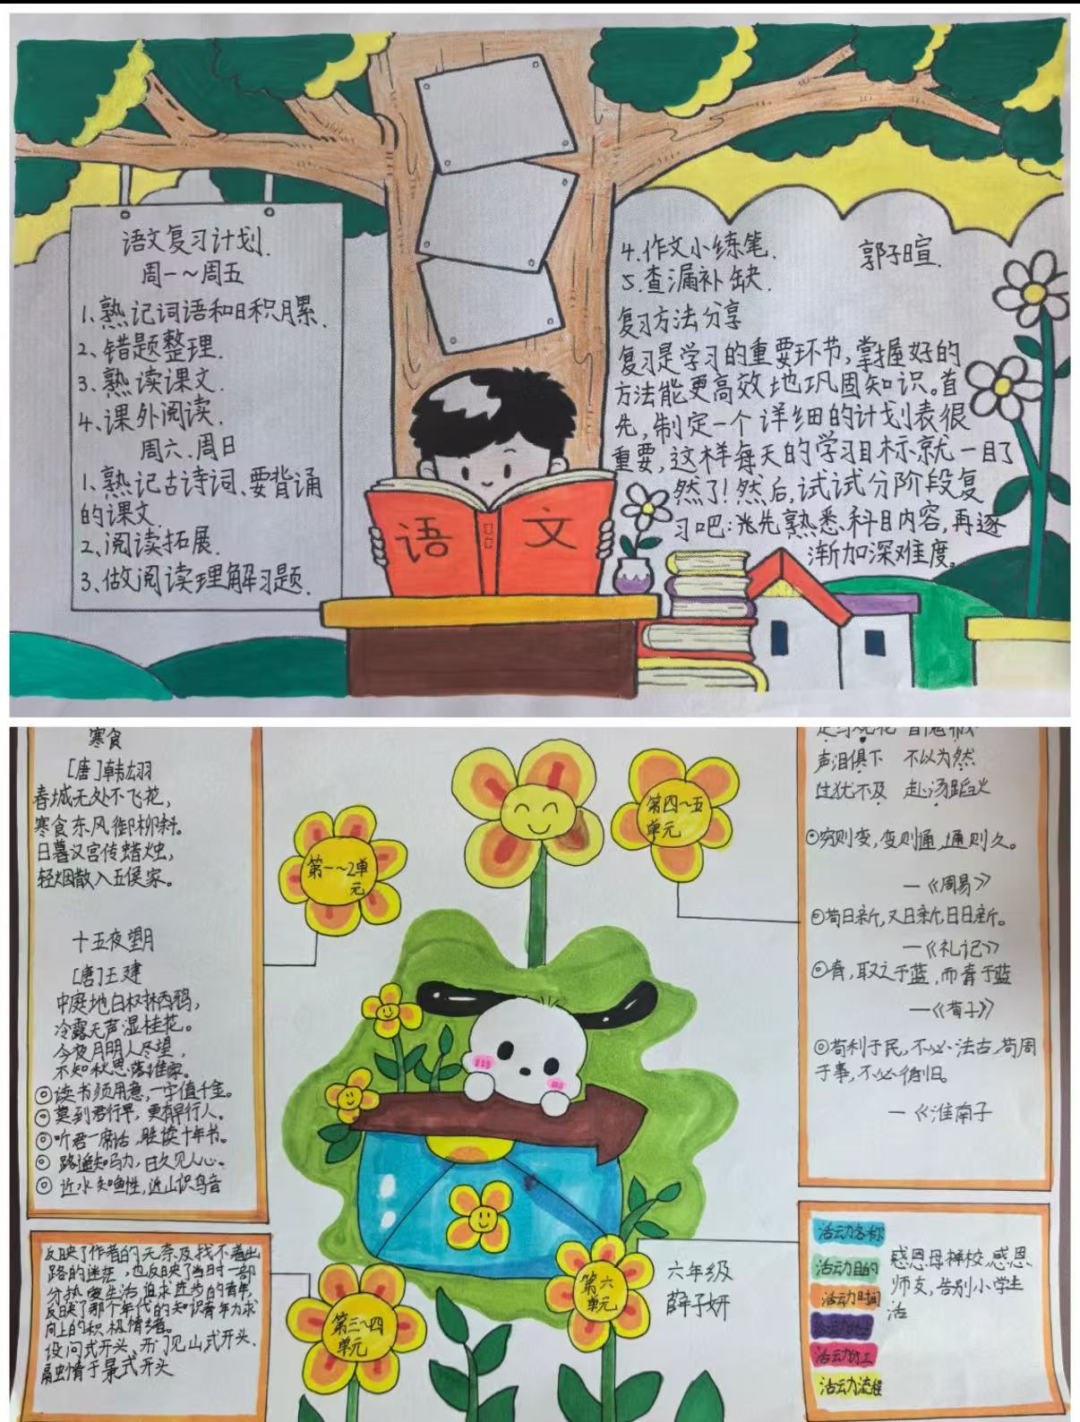 语文复习计划.
周一～周五
1、熟记词语和日积月累.
2、错题整理.
3、熟读课文.
4、课外阅读.
周六、周日
1、熟记古诗词、要背诵
的课文.
2、阅读拓展.
3、做阅读理解习题.
语文
4.作文小练笔.
5.查漏补缺.
郭子暄.
复习方法分享
复习是学习的重要环节,掌握好的
方法能更高效地巩固知识。首
先,制定一个详细的计划表很
重要,这样每天的学习目标就一目了
然了!然后,试试分阶段复
习吧:先熟悉科目内容,再逐
渐加深难度。
寒食
[唐]韩翃
春城无处不飞花,
寒食东风御柳斜。
日暮汉宫传蜡烛,
轻烟散入五侯家。
十五夜望月
[唐]王建
中庭地白树栖鸦,
冷露无声湿桂花。
今夜月明人尽望,
不知秋思落谁家。
◎读书须用意,一字值千金。
◎莫到君行早,更有早行人。
◎听君一席话,胜读十年书。
◎路遥知马力,日久见人心。
◎近水知鱼性,近山识鸟音
第一～2单
元
第四～五
单元
声泪俱下 不以为然
过犹不及 赴汤蹈火
◎穷则变,变则通,通则久。
—《周易》
◎苟日新,又日新,日日新。
—《礼记》
◎青,取之于蓝,而青于蓝
—《荀子》
◎苟利于民,不必法古,苟周
于事,不必循旧。
—《淮南子
反映了作者的无奈及找不着出
路的迷茫,也反映了当时一部
分热爱生活追求进步的青年,
反映了那个年代的知识青年力求
向上的积极情绪。
设问式开头、开门见山式开头、
融情于景式开头
第三～四
单元
第六
单元
六年级
薛子妍
活动名称
活动目的
活动时间
活动分工
活动流程
感恩母校,感恩
师友,告别小学生
活